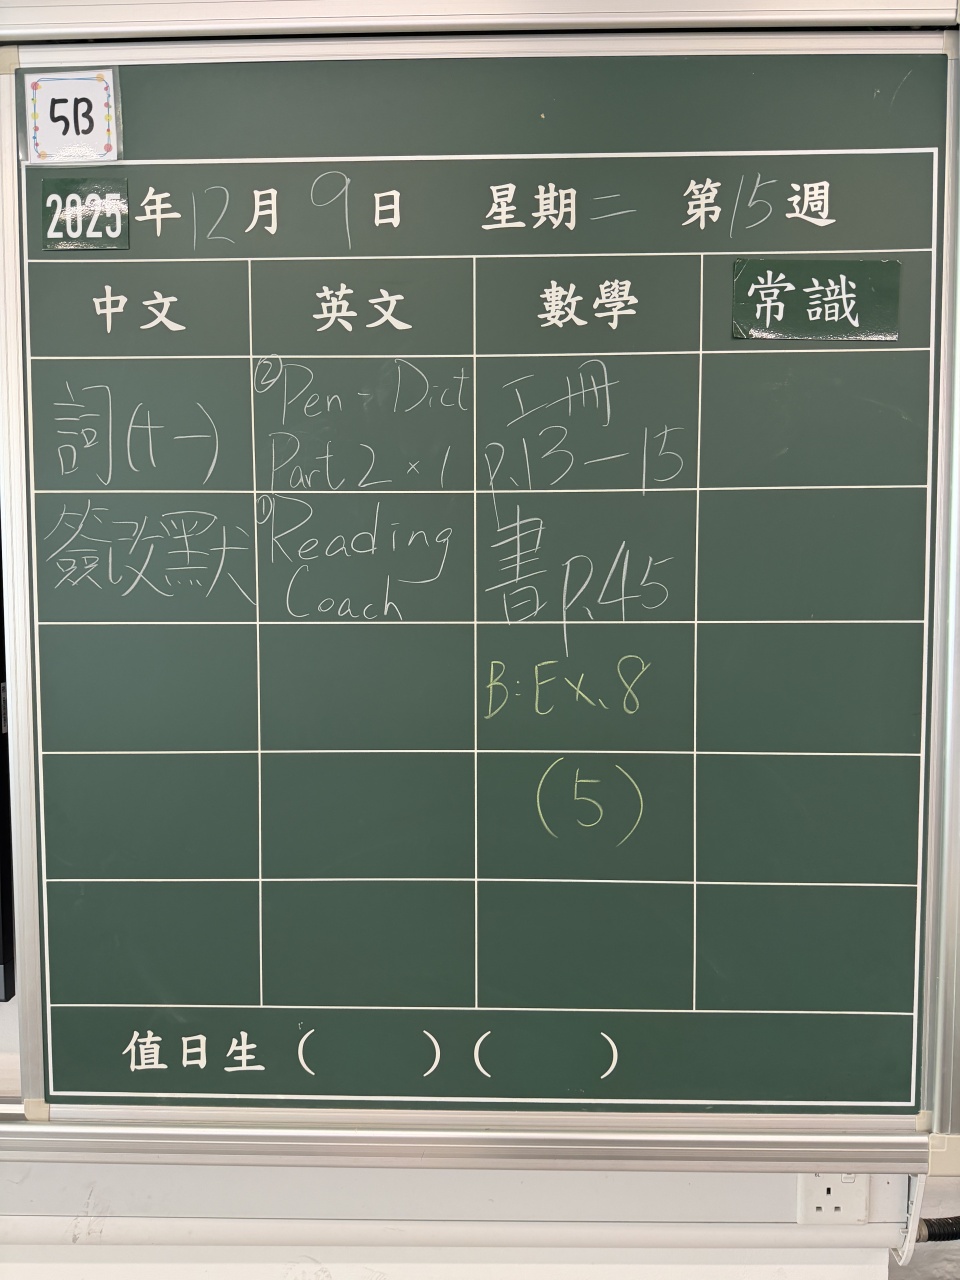 5B
2025年12月9日 星期二 第15週
中文 英文 數學 常識
詞(十一)
②Pen - Dict
Part 2 × 1
工冊
P.13－15
簽改默
①Reading
Coach
書P.45
B: Ex. 8
(5)
值日生 ( ) ( )